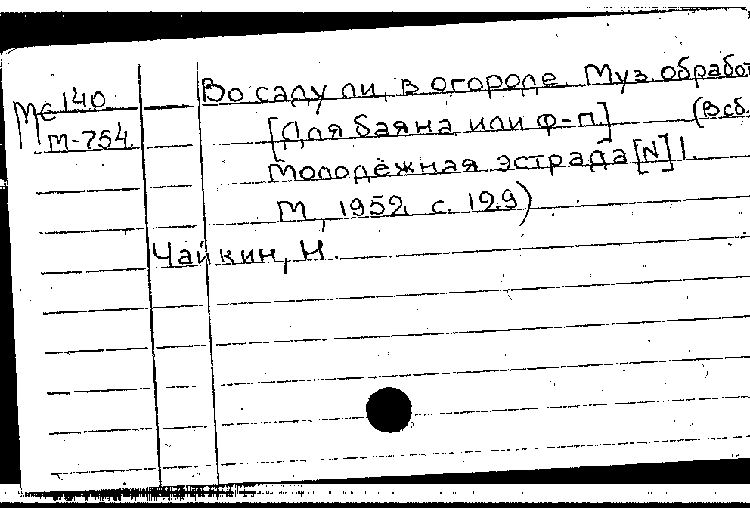 Мс 140
М-754
Во саду ли, в огороде. Муз. обработ
[Для баяна или ф-п.] (В сб.
Молодёжная эстрада [N] 1.
М, 1952. с. 129)
Чайкин, Н.